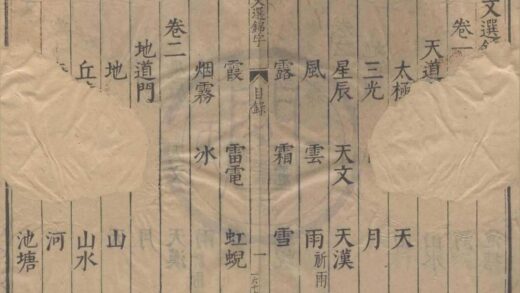 文選
卷一
天道
太極 天
三光 月
星辰 天文 天漢
風 雲 雨祈雨
露 霜 雪
文選錦字 目録 一
霞 雷電 虹蜺
烟霧 冰
卷二
地道門
地 山
丘 山水
河
池塘